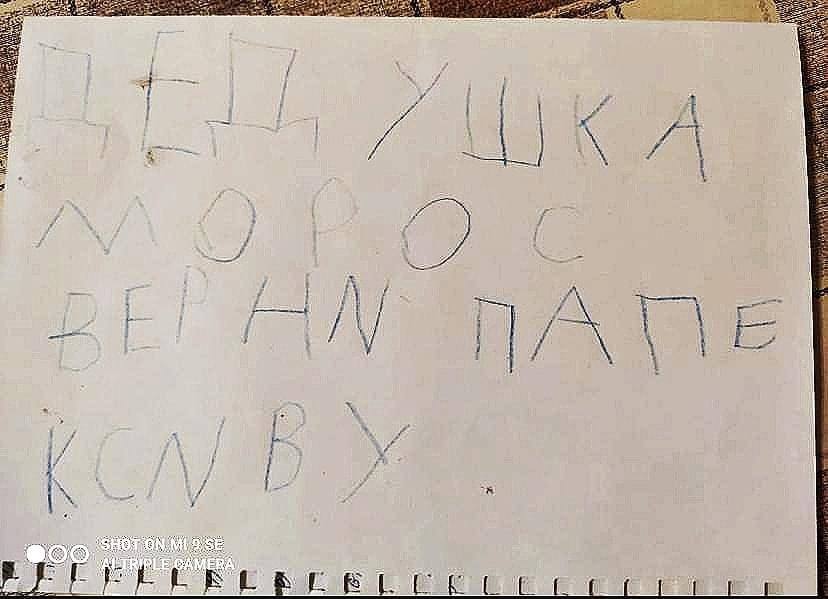 ДЕДУШКА
МОРОС
ВЕРНN ПАПЕ
КСNВУ
SHOT ON MI 9 SE
AI TRIPLE CAMERA